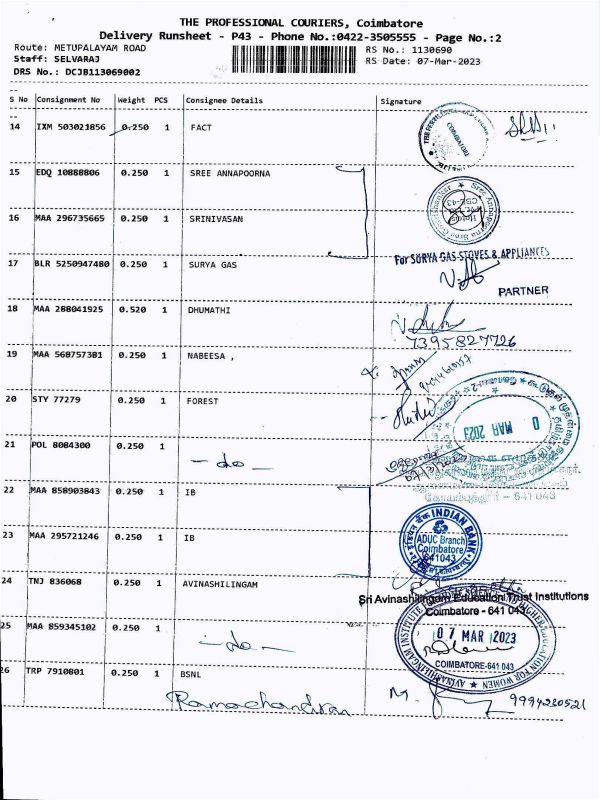 THE PROFESSIONAL COURIERS, Coimbatore
Delivery Runsheet - P43 - Phone No.:0422-3505555 - Page No.:2
Route: METUPALAYAM ROAD RS No.: 1130690
Staff: SELVARAJ RS Date: 07-Mar-2023
DRS No.: DCJB113069002
S No Consignment No Weight PCS Consignee Details Signature
14 IXM 503021856 0.250 1 FACT
COIMBATORE
15 EDQ 10888806 0.250 1 SREE ANNAPOORNA
16 MAA 296735665 0.250 1 SRINIVASAN
17 BLR 5250947480 0.250 1 SURYA GAS
For SURYA GAS STOVES & APPLIANCES
PARTNER
18 MAA 288041925 0.520 1 DHUMATHI
7395827726
19 MAA 568757381 0.250 1 NABEESA ,
20 STY 77279 0.250 1 FOREST
MAR 2023
21 POL 8084300 0.250 1
- do -
கோயம்புத்தூர் - 641 043
22 MAA 858903843 0.250 1 IB
INDIAN BANK
ADUC Branch
Coimbatore
641043
23 MAA 295721246 0.250 1 IB
24 TNJ 836068 0.250 1 AVINASHILINGAM
Sri Avinashilingam Education Trust Institutions
Coimbatore - 641 043
25 MAA 859345102 0.250 1
- do -
07 MAR 2023
COIMBATORE-641 043
26 TRP 7910801 0.250 1 BSNL
Ramachandran
9994230521